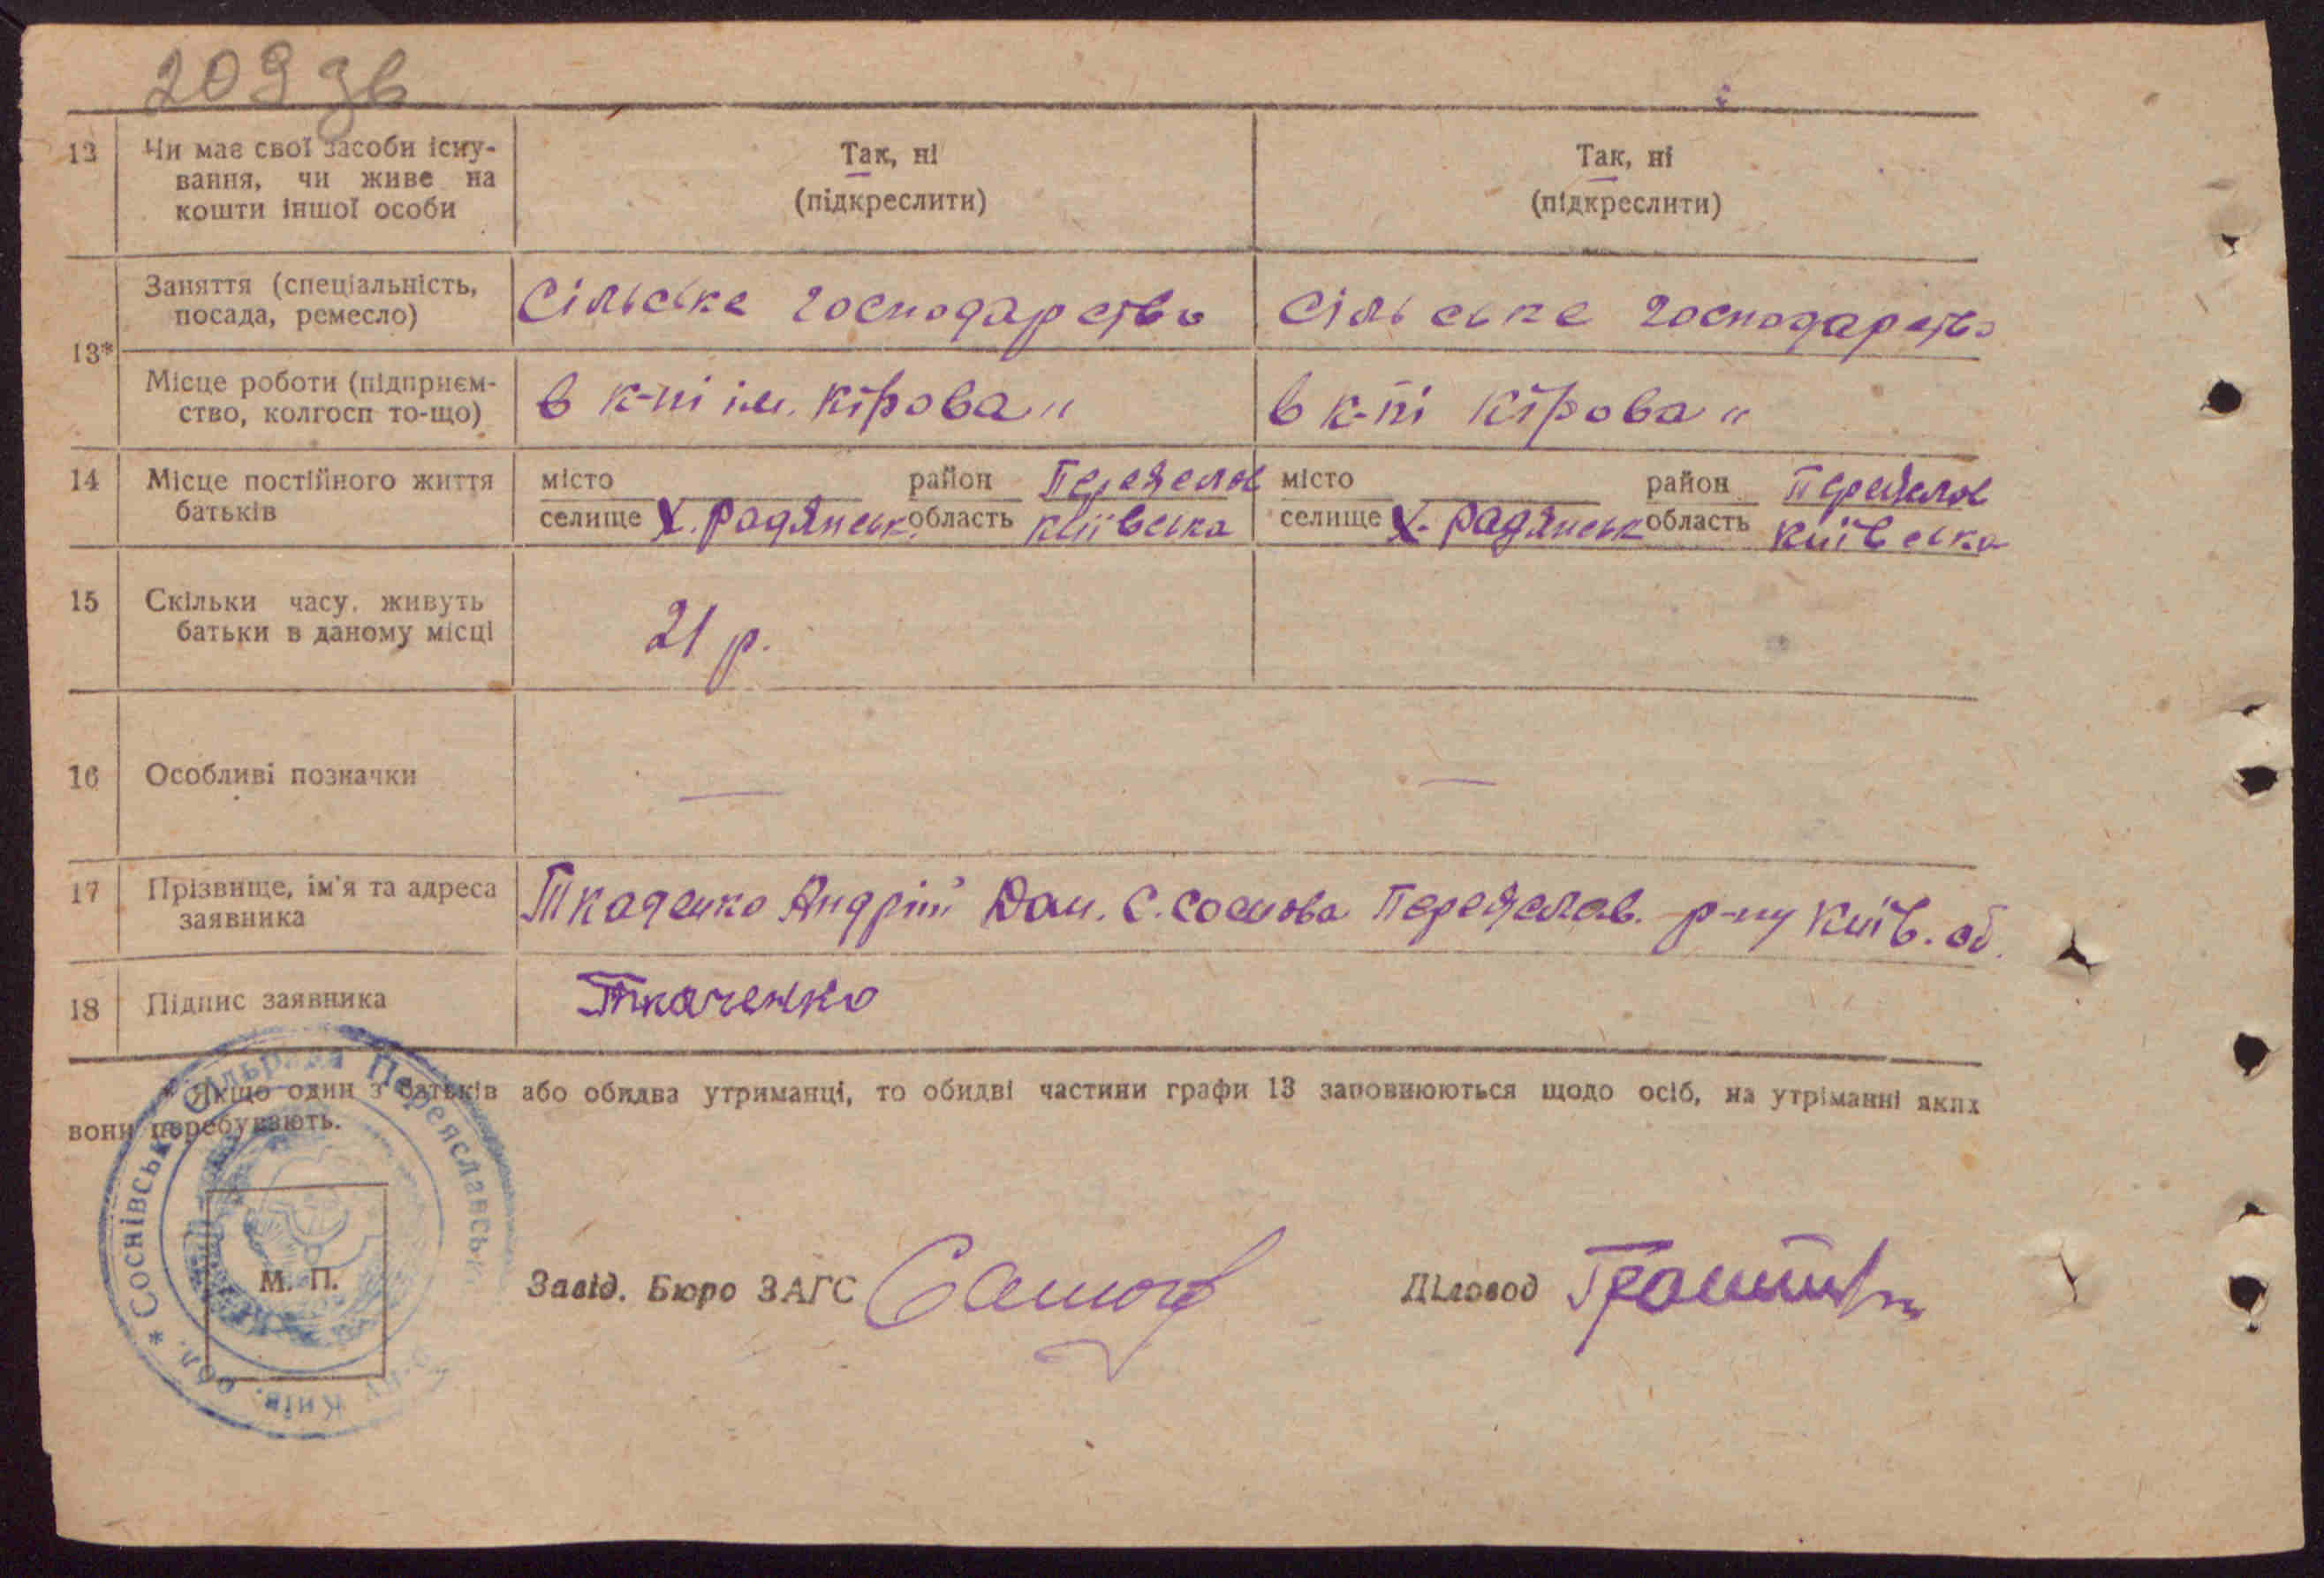 209 зв
12 Чи має свої засоби існу-
вання, чи живе на
кошти іншої особи
Так, ні
(підкреслити)
Так, ні
(підкреслити)
13*
Заняття (спеціальність,
посада, ремесло)
Сільське господарство
Сільське господарство
Місце роботи (підприєм-
ство, колгосп то-що)
в к-пі ім. Кірова"
в к-пі Кірова"
14 Місце постійного життя
батьків
місто район Переяслов
селище х. Радянськ. область Київська
місто район Переяслов
селище х. Радянськ область Київська
15 Скільки часу живуть
батьки в даному місці
21 р.
16 Особливі позначки
— —
17 Прізвище, ім'я та адреса
заявника
Ткаченко Андрій Дан. с. Сомкова Переяслав. р-ну Київ. об.
18 Підпис заявника
Ткаченко
* Якщо один з батьків або обидва утриманці, то обидві частини графи 13 заповнюються щодо осіб, на утріманні яких
вони перебувають.
* Соснівська Сільрада Переяславськ. р-ну Київ. обл.
М. П.
Завід. Бюро ЗАГС
Діловод